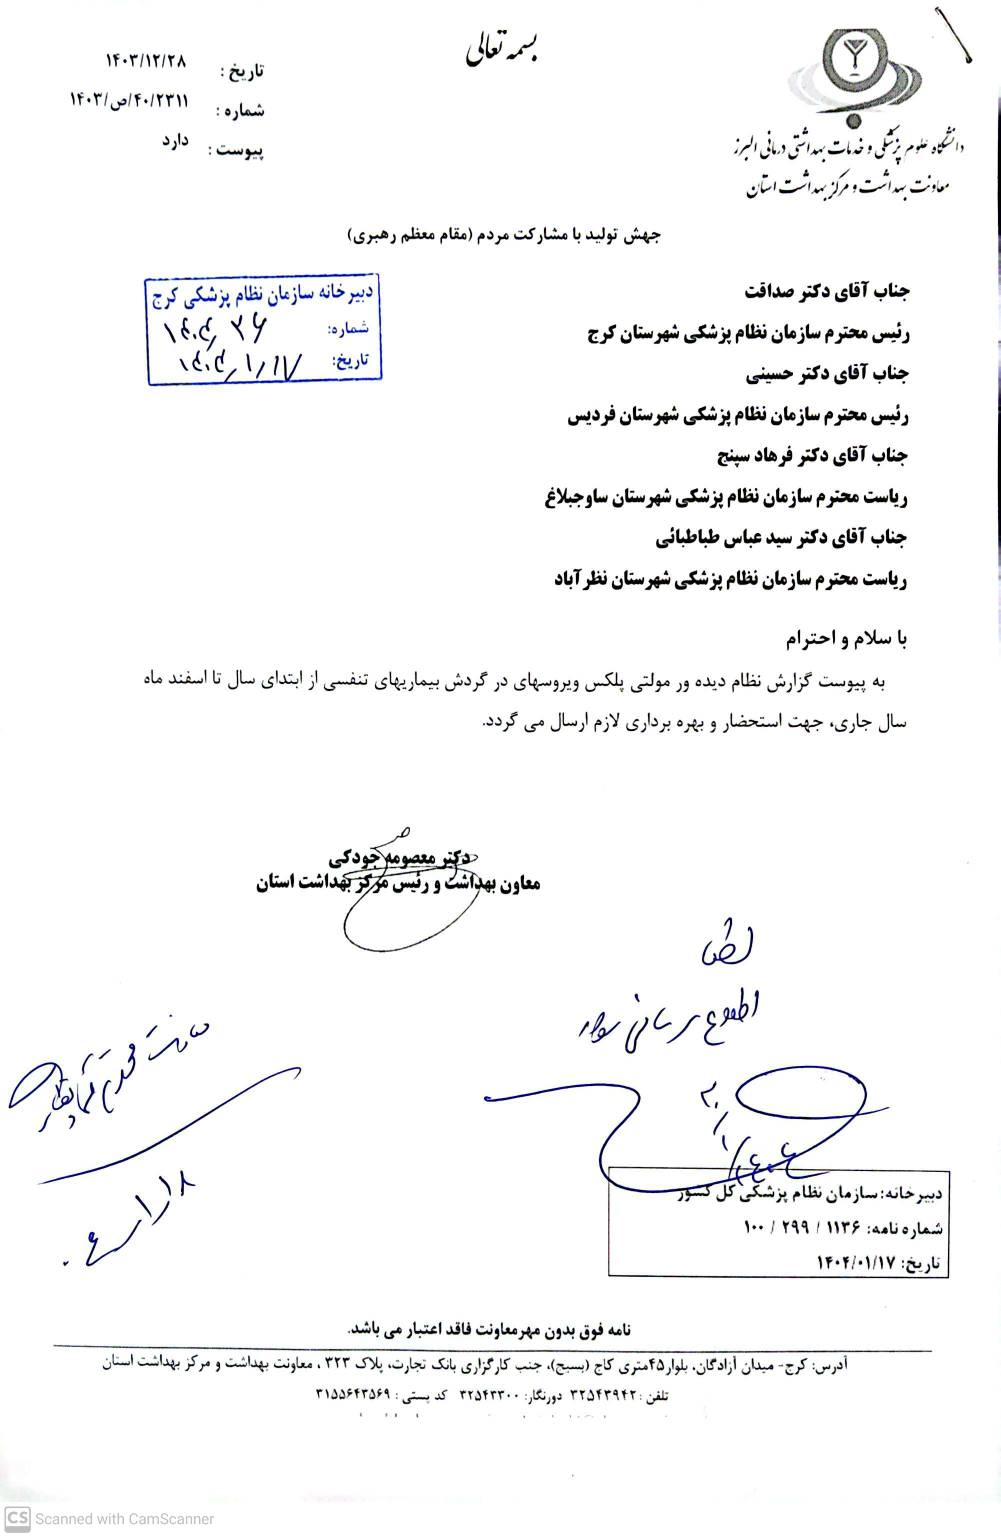 بسمه تعالی
تاریخ : ۱۴۰۳/۱۲/۲۸
شماره : ۱۴۰۳/ص/۴۰/۲۳۱۱
پیوست : دارد
دانشگاه علوم پزشکی و خدمات بهداشتی درمانی البرز
معاونت بهداشت و مرکز بهداشت استان
جهش تولید با مشارکت مردم (مقام معظم رهبری)
دبیرخانه سازمان نظام پزشکی کرج
شماره:
تاریخ:
جناب آقای دکتر صداقت
رئیس محترم سازمان نظام پزشکی شهرستان کرج
جناب آقای دکتر حسینی
رئیس محترم سازمان نظام پزشکی شهرستان فردیس
جناب آقای دکتر فرهاد سپنج
ریاست محترم سازمان نظام پزشکی شهرستان ساوجبلاغ
جناب آقای دکتر سید عباس طباطبائی
ریاست محترم سازمان نظام پزشکی شهرستان نظرآباد
با سلام و احترام
به پیوست گزارش نظام دیده ور مولتی پلکس ویروسهای در گردش بیماریهای تنفسی از ابتدای سال تا اسفند ماه
سال جاری، جهت استحضار و بهره برداری لازم ارسال می گردد.
دکتر معصومه جودکی
معاون بهداشت و رئیس مرکز بهداشت استان
لطفا
دبیرخانه: سازمان نظام پزشکی کل کشور
شماره نامه: ۱۱۳۶ / ۲۹۹ / ۱۰۰
تاریخ: ۱۴۰۴/۰۱/۱۷
نامه فوق بدون مهرمعاونت فاقد اعتبار می باشد.
آدرس: کرج- میدان آزادگان، بلوار۴۵متری کاج (بسیج)، جنب کارگزاری بانک تجارت، پلاک ۳۲۳ ، معاونت بهداشت و مرکز بهداشت استان
تلفن : ۳۲۵۴۳۹۴۲ دورنگار: ۳۲۵۴۳۳۰۰ کد پستی : ۳۱۵۵۶۴۳۵۶۹
CS Scanned with CamScanner